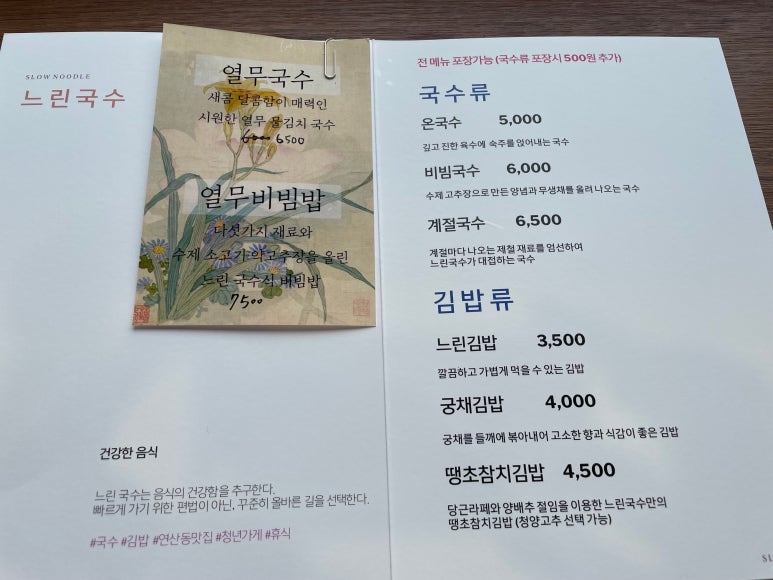 SLOW NOODLE
느린국수
열무국수
새콤 달콤함이 매력인
시원한 열무 물김치 국수
6000 6500
열무비빔밥
다섯가지 재료와
수제 소고기 약고추장을 올린
느린 국수식 비빔밥
7500
건강한 음식
느린 국수는 음식의 건강함을 추구한다.
빠르게 가기 위한 편법이 아닌, 꾸준히 올바른 길을 선택한다.
#국수 #김밥 #연산동맛집 #청년가게 #휴식
전 메뉴 포장가능 (국수류 포장시 500원 추가)
국수류
온국수 5,000
깊고 진한 육수에 숙주를 얹어내는 국수
비빔국수 6,000
수제 고추장으로 만든 양념과 무생채를 올려 나오는 국수
계절국수 6,500
계절마다 나오는 제철 재료를 엄선하여
느린국수가 대접하는 국수
김밥류
느린김밥 3,500
깔끔하고 가볍게 먹을 수 있는 김밥
궁채김밥 4,000
궁채를 들깨에 볶아내어 고소한 향과 식감이 좋은 김밥
땡초참치김밥 4,500
당근라페와 양배추 절임을 이용한 느린국수만의
땡초참치김밥 (청양고추 선택 가능)